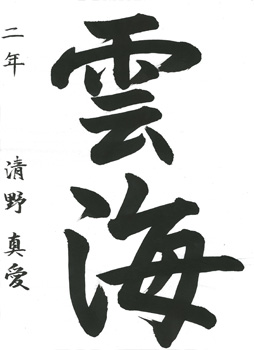 雲海
二年 清野真愛